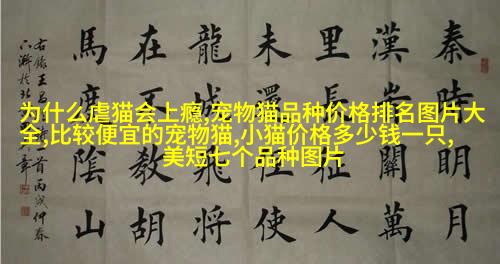 为什么虐猫会上瘾,宠物猫品种价格排名图片大
全,比较便宜的宠物猫,小猫价格多少钱一只,
美短七个品种图片
秦時眀月
漢關萬
里長征人
未還使
龍城飛將
在教胡
馬度陰山
右錄王昌首丙戌仲春